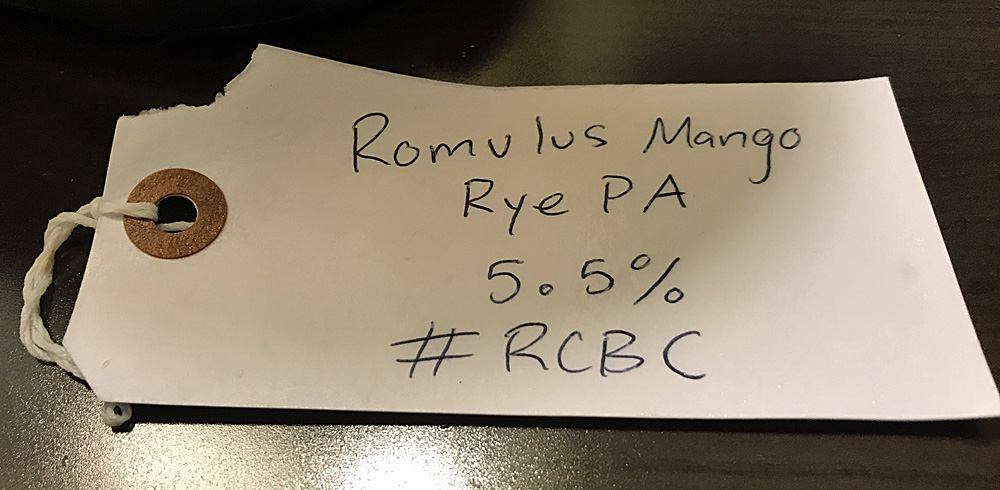 Romulus Mango
Rye PA
5.5%
#RCBC